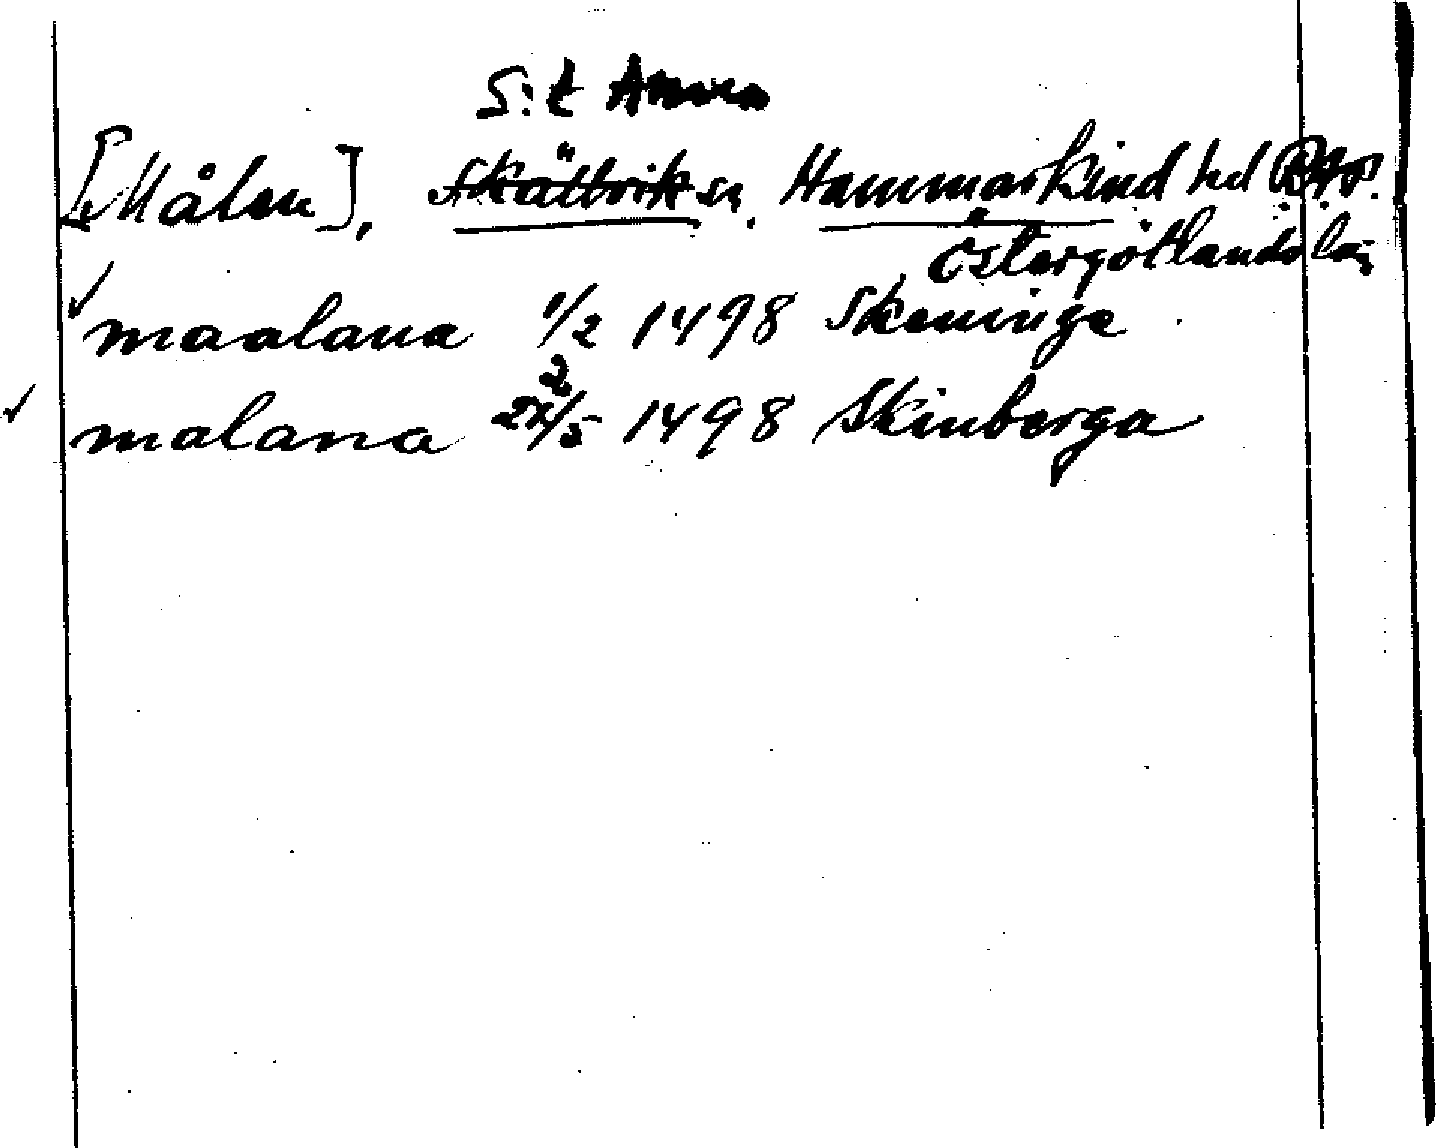 S:t Anna
[Målen], Skällvik sn. Hammarkind hd
Östergötlands län
maalana 1/2 1498 Skeninge
malana 22/5 1498 Skinberga